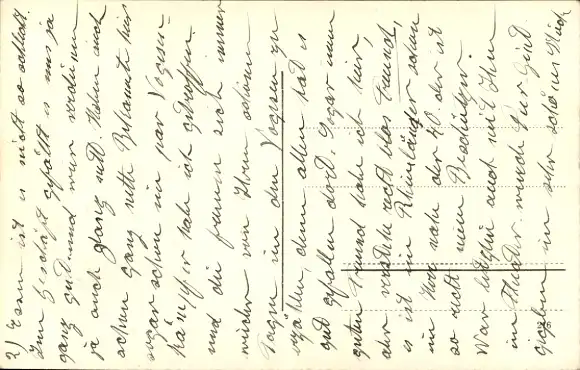 2) Essen ist es nicht so schlecht.
Im Geschäft gefällt es mir ja
ganz gut und man verdient
ja auch ganz nett. Habe auch
schon ganz nette Bekannte hier
sogar schon ein par Vogesen-
kämpfer habe ich getroffen.
und die freuen sich immer
wieder von ihren schönen
Tagen in den Vogesen zu
erzählen, denn allen hat es
gut gefallen dort. Sogar einen
guten Freund habe ich hier,
aber verstehe recht blos Freund,
es ist ein Rheinländer schon
ein Herr nahe der 40 der ist
so recht mein Beschützer.
War letzthin auch mit ihm
im Theater. wurde Peer Gynt
gegeben ein sehr schönes Stück